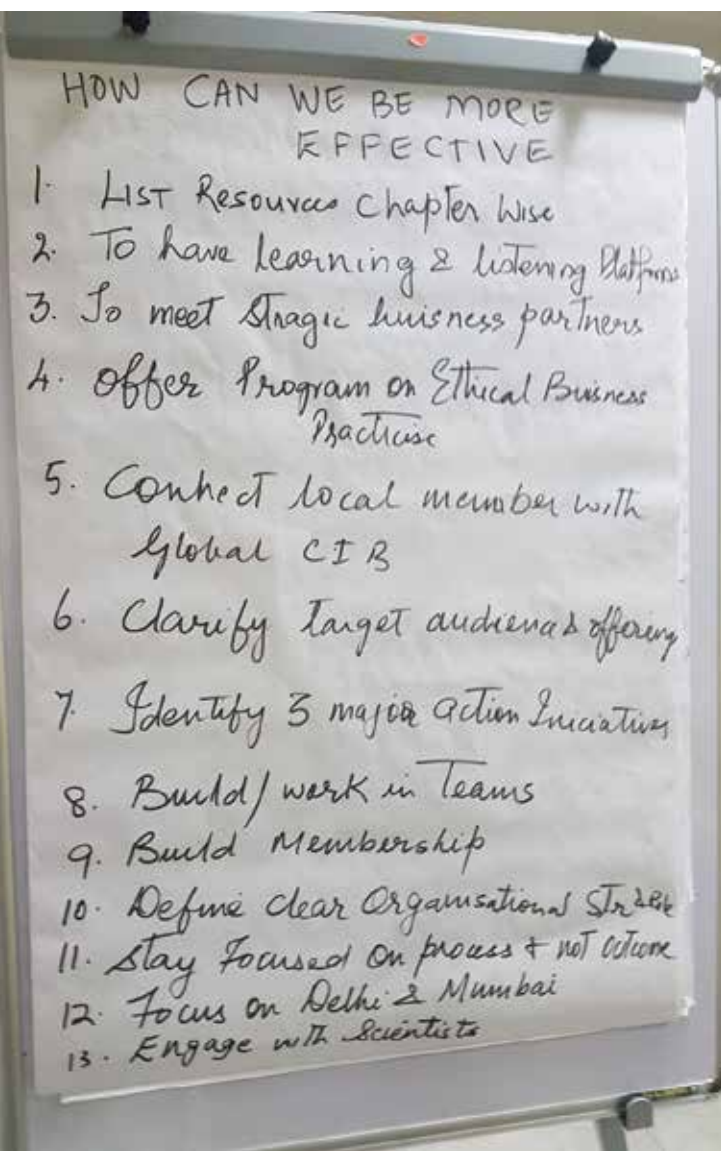 HOW CAN WE BE MORE
EFFECTIVE
1. LIST Resources Chapter Wise
2. To have learning & listening Platforms
3. To meet Stragic buisness partners
4. Offer Program on Ethical Buisness
Practicise
5. Connect local member with
Global CIB
6. Clarify Target audience & offering
7. Identify 3 major action Iniciatives
8. Build/work in Teams
9. Build Membership
10. Define clear Organisational Str &
11. Stay Focused On process & not outcome
12. Focus on Delhi & Mumbai
13. Engage with Scientists